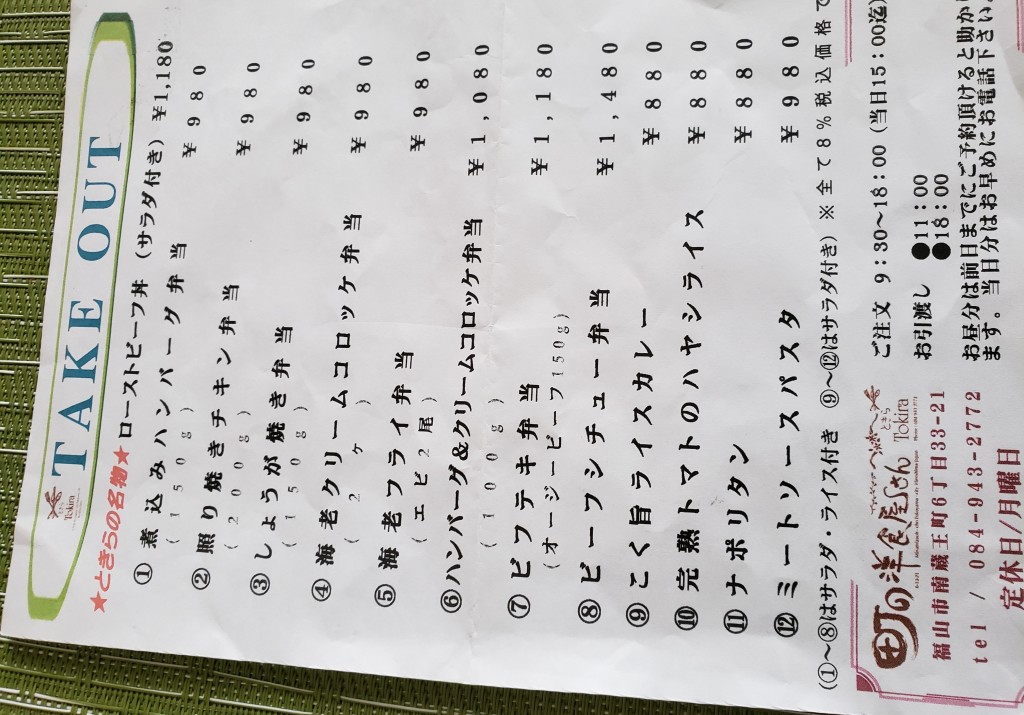 TAKE OUT
ときら
Tokira
★ときらの名物★ローストビーフ丼 (サラダ付き) ¥1,180
① 煮込みハンバーグ弁当 ¥980
(150g)
② 照り焼きチキン弁当 ¥980
(200g)
③ しょうが焼き弁当 ¥980
(150g)
④ 海老クリームコロッケ弁当 ¥980
(2ヶ)
⑤ 海老フライ弁当 ¥980
(エビ2尾)
⑥ハンバーグ&クリームコロッケ弁当 ¥1,080
(100g)
⑦ ビフテキ弁当 ¥1,180
(オージービーフ150g)
⑧ ビーフシチュー弁当 ¥1,480
⑨ こく旨ライスカレー ¥880
⑩ 完熟トマトのハヤシライス ¥880
⑪ ナポリタン ¥880
⑫ ミートソースパスタ ¥980
(①~⑧はサラダ・ライス付き ⑨~⑫はサラダ付き) ※全て8%税込価格で
町の洋食屋さん
ときら
Tokira
福山市南蔵王町6丁目33-21
tel / 084-943-2772
定休日/月曜日
ご注文 9:30~18:00 (当日15:00迄)
お引渡し ●11:00
●18:00
お昼分は前日までにご予約頂けると助か
ます。当日分はお早めにお電話下さい。